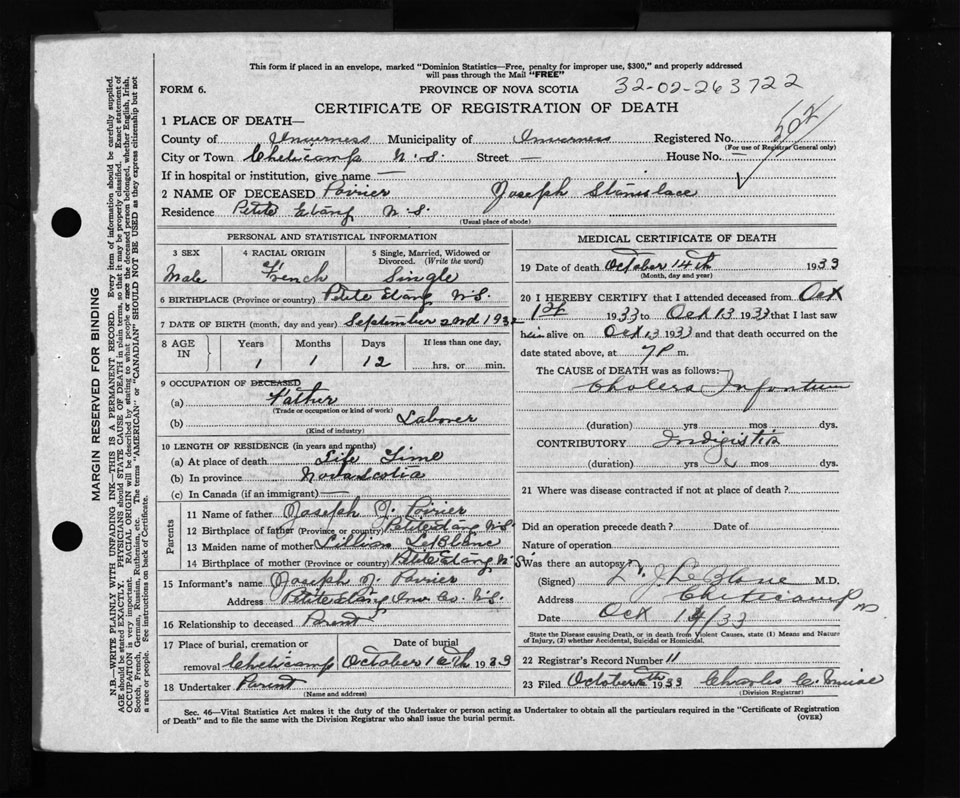 This form if placed in an envelope, marked "Dominion Statistics—Free, penalty for improper use, $300," and properly addressed
will pass through the Mail "FREE"
FORM 6. PROVINCE OF NOVA SCOTIA 32-02-263722
CERTIFICATE OF REGISTRATION OF DEATH
1 PLACE OF DEATH—
County of Inverness Municipality of Inverness Registered No. 502
(For use of Registrar General only)
City or Town Cheticamp N.S. Street — House No. —
If in hospital or institution, give name —
2 NAME OF DECEASED Poirier Joseph Stanislace
Residence Petite Etang N.S.
(Usual place of abode)
PERSONAL AND STATISTICAL INFORMATION
3 SEX 4 RACIAL ORIGIN 5 Single, Married, Widowed or
Divorced. (Write the word)
Male French Single
6 BIRTHPLACE (Province or country) Petite Etang N.S.
7 DATE OF BIRTH (month, day and year) September 2nd 1932
8 AGE IN Years Months Days If less than one day,
1 1 12 hrs. or min.
9 OCCUPATION OF DECEASED
(a) Father
(Trade or occupation or kind of work)
(b) Laborer
(Kind of industry)
10 LENGTH OF RESIDENCE (in years and months)
(a) At place of death Life Time
(b) In province Nova Scotia
(c) In Canada (if an immigrant) —
Parents
11 Name of father Joseph N. Poirier
12 Birthplace of father (Province or country) Petite Etang N.S.
13 Maiden name of mother Lillian LeBlanc
14 Birthplace of mother (Province or country) Petite Etang N.S.
15 Informant's name Joseph N. Poirier
Address Petite Etang Inv. Co. N.S.
16 Relationship to deceased Parent
17 Place of burial, cremation or Date of burial
removal Cheticamp October 16th 1933
18 Undertaker Parent
(Name and address)
MEDICAL CERTIFICATE OF DEATH
19 Date of death October 14th 1933
(Month, day and year)
20 I HEREBY CERTIFY that I attended deceased from Oct
1st 1933 to Oct 13 1933 that I last saw
him alive on Oct 13 1933 and that death occurred on the
date stated above, at 7 P m.
The CAUSE of DEATH was as follows:
Cholera Infantum
(duration) yrs mos dys.
CONTRIBUTORY Indigestion
(duration) yrs mos dys.
21 Where was disease contracted if not at place of death?
Did an operation precede death? Date of
Nature of operation
Was there an autopsy
(Signed) L. J. LeBlanc M.D.
Address Cheticamp NS
Date Oct 14/33
State the Disease causing Death, or in death from Violent Causes, state (1) Means and Nature
of Injury, (2) whether Accidental, Suicidal or Homicidal.
22 Registrar's Record Number 11
23 Filed October 1933 Charles C.
(Division Registrar)
Sec. 46—Vital Statistics Act makes it the duty of the Undertaker or person acting as Undertaker to obtain all the particulars required in the "Certificate of Registration
of Death" and to file the same with the Division Registrar who shall issue the burial permit. (OVER)
MARGIN RESERVED FOR BINDING
N.B.—WRITE PLAINLY WITH UNFADING INK—THIS IS A PERMANENT RECORD. Every item of information should be carefully supplied.
AGE should be stated EXACTLY. PHYSICIANS should STATE CAUSE OF DEATH in plain terms, so that it may be properly classified. Exact statement of
OCCUPATION is very important. RACIAL ORIGIN will be described by stating to what people or race the deceased person belonged, whether English, Irish,
Scotch, French, German, Russian, Ruthenian, etc. The terms "AMERICAN" or "CANADIAN" SHOULD NOT BE USED as they express citizenship but not
a race or people. See instructions on back of Certificate.